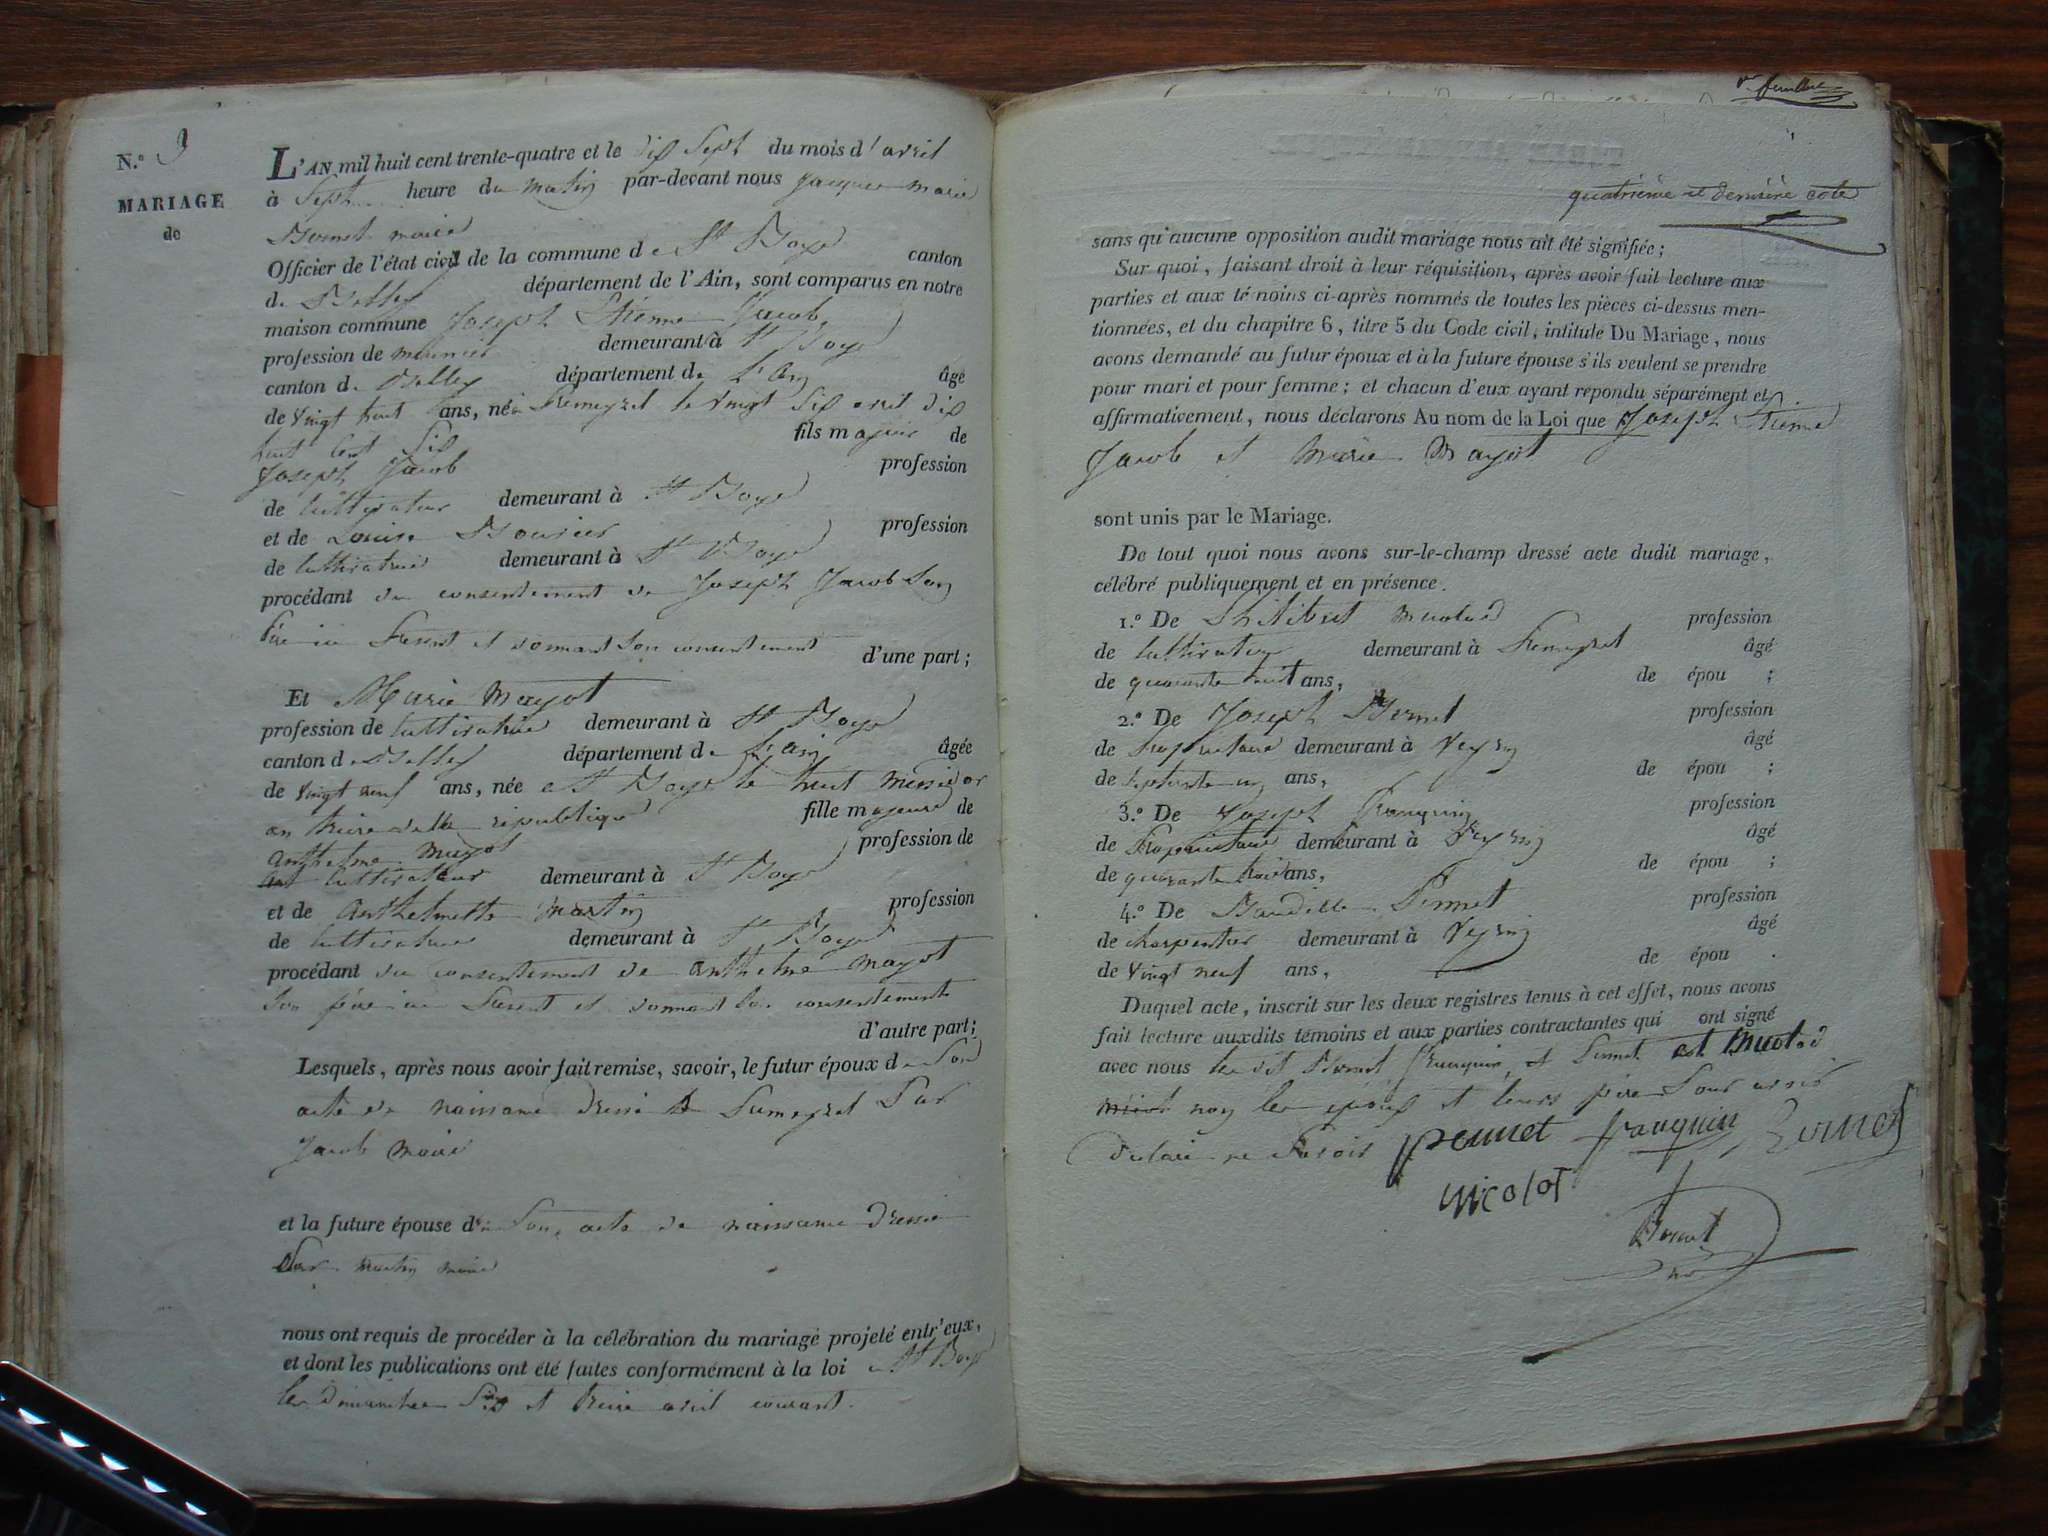 N.° 9
MARIAGE
de
L'AN mil huit cent trente-quatre et le dix Sept du mois d'avril
à Sept heure du matin par-devant nous jacques marie
Bornet maire
Officier de l'état civil de la commune de St Boys canton
de Belley département de l'Ain, sont comparus en notre
maison commune Joseph Etienne Jacob
profession de meunier demeurant à St Boys
canton de Belley département de L'ain âgé
de vingt huit ans, né à Premeyzel le vingt six avril dix
huit cent six fils majeur de
Joseph Jacob profession
de cultivateur demeurant à St Boys
et de Louise profession
de cultivatrice demeurant à St Boys
procédant du consentement de Joseph Jacob Son
père ici présent et donnant son consentement
d'une part;
Et Marie Mayot
profession de cultivatrice demeurant à St Boys
canton de Belley département de L'ain âgée
de vingt neuf ans, née a St Boys le huit messidor
an treize de la république fille majeure de
anthelme mayot profession de
cultivateur demeurant à St Boys
et de anthelmette martin profession
de cultivatrice demeurant à St Boys
procédant du consentement de anthelme mayot
Son père ici présent et donnant son consentement
d'autre part;
Lesquels, après nous avoir fait remise, savoir, le futur époux de Son
acte de naissance dressé a Premeyzel Par
Jacob maire
et la future épouse de Son acte de naissance dressé
Par martin maire
nous ont requis de procéder à la célébration du mariage projeté entr'eux,
et dont les publications ont été faites conformément à la loi a St Boys
les dimanches Six et treize avril courant.
quatrième et dernière cote
sans qu'aucune opposition audit mariage nous ait été signifiée;
Sur quoi, faisant droit à leur réquisition, après avoir fait lecture aux
parties et aux té noins ci-après nommés de toutes les pièces ci-dessus men-
tionnées, et du chapitre 6, titre 5 du Code civil, intitule Du Mariage, nous
avons demandé au futur époux et à la future épouse s'ils veulent se prendre
pour mari et pour femme; et chacun d'eux ayant repondu séparément et
affirmativement, nous déclarons Au nom de la Loi que Joseph Etienne
Jacob et Marie Mayot
sont unis par le Mariage.
De tout quoi nous avons sur-le-champ dressé acte dudit mariage,
célébré publiquement et en présence.
1.° De Philibert profession
de cultivateur demeurant à Premeyzel âgé
de quarante huit ans, de épou ;
2.° De Joseph Bornet profession
de Propriétaire demeurant à Veyrin âgé
de soixante un ans, de épou ;
3.° De Joseph franquin profession
de Propriétaire demeurant à Veyrin âgé
de quarante trois ans, de épou ;
4.° De Baudille Pennet profession
de charpentier demeurant à Veyrin âgé
de vingt neuf ans, de épou .
Duquel acte, inscrit sur les deux registres tenus à cet effet, nous avons
fait lecture auxdits témoins et aux parties contractantes qui ont signé
avec nous franquin et Pennet et
non les époux et leurs père Pour avoir
déclaré ne Savoir pennet franquin
nicolot
Bornet